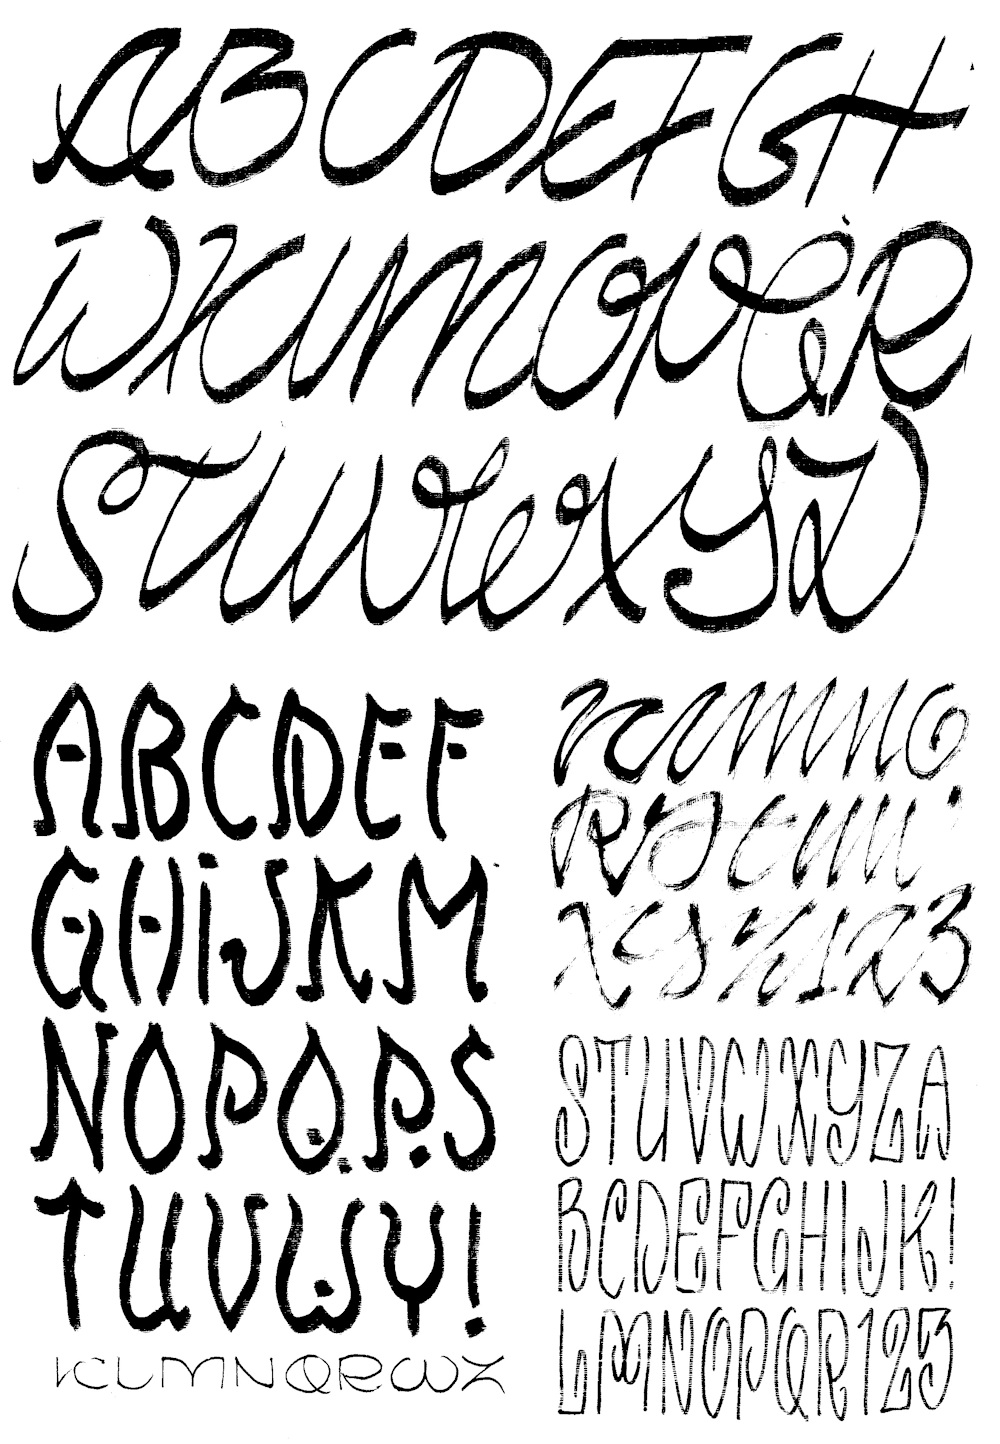 ABCDEFGH
IJKLMNOPQR
STUVWXYZ
ABCDEF
GHIJKM
NOPQRS
TUVWY!
KLMNQRWZ
KLMNO
123
STUVWXYZA
BCDEFGHIJK!
LMNOPQR123